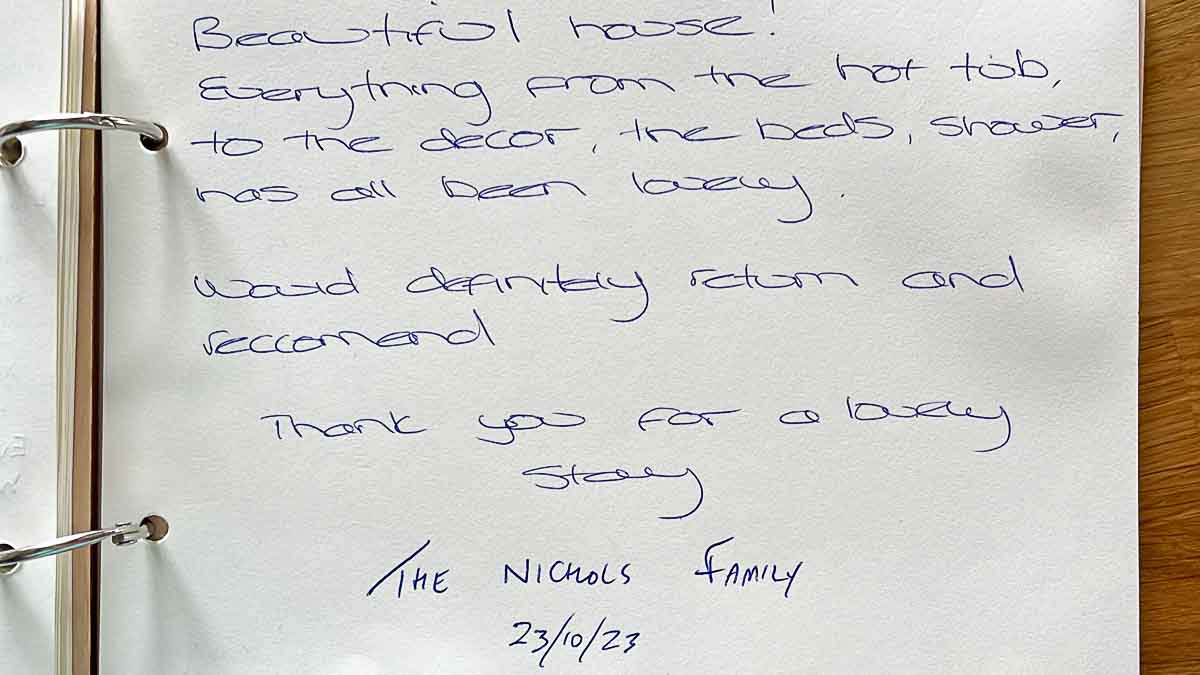 Beautiful house!
Everything from the hot tub,
to the decor, the beds, shower,
has all been lovely.
Would definitely return and
reccomend
Thank you for a lovely
stay
THE NICHOLS FAMILY
23/10/23